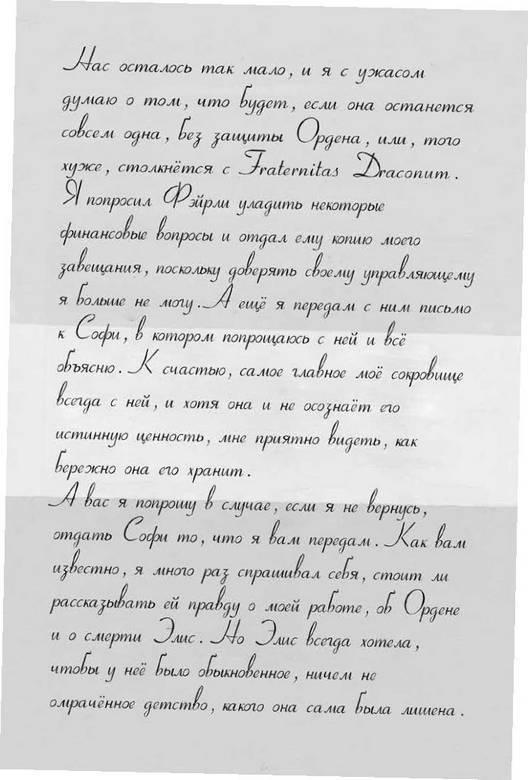 Нас осталось так мало, и я с ужасом
думаю о том, что будет, если она останется
совсем одна, без защиты Ордена, или, того
хуже, столкнётся с Fraternitas Draconum.
Я попросил Фэйрли уладить некоторые
финансовые вопросы и отдал ему копию моего
завещания, поскольку доверять своему управляющему
я больше не могу. А ещё я передам с ним письмо
к Софи, в котором попрощаюсь с ней и всё
объясню. К счастью, самое главное моё сокровище
всегда с ней, и хотя она и не осознаёт его
истинную ценность, мне приятно видеть, как
бережно она его хранит.
А вас я попрошу в случае, если я не вернусь,
отдать Софи то, что я вам передам. Как вам
известно, я много раз спрашивал себя, стоит ли
рассказывать ей правду о моей работе, об Ордене
и о смерти Элис. Но Элис всегда хотела,
чтобы у неё было обыкновенное, ничем не
омрачённое детство, какого она сама была лишена.